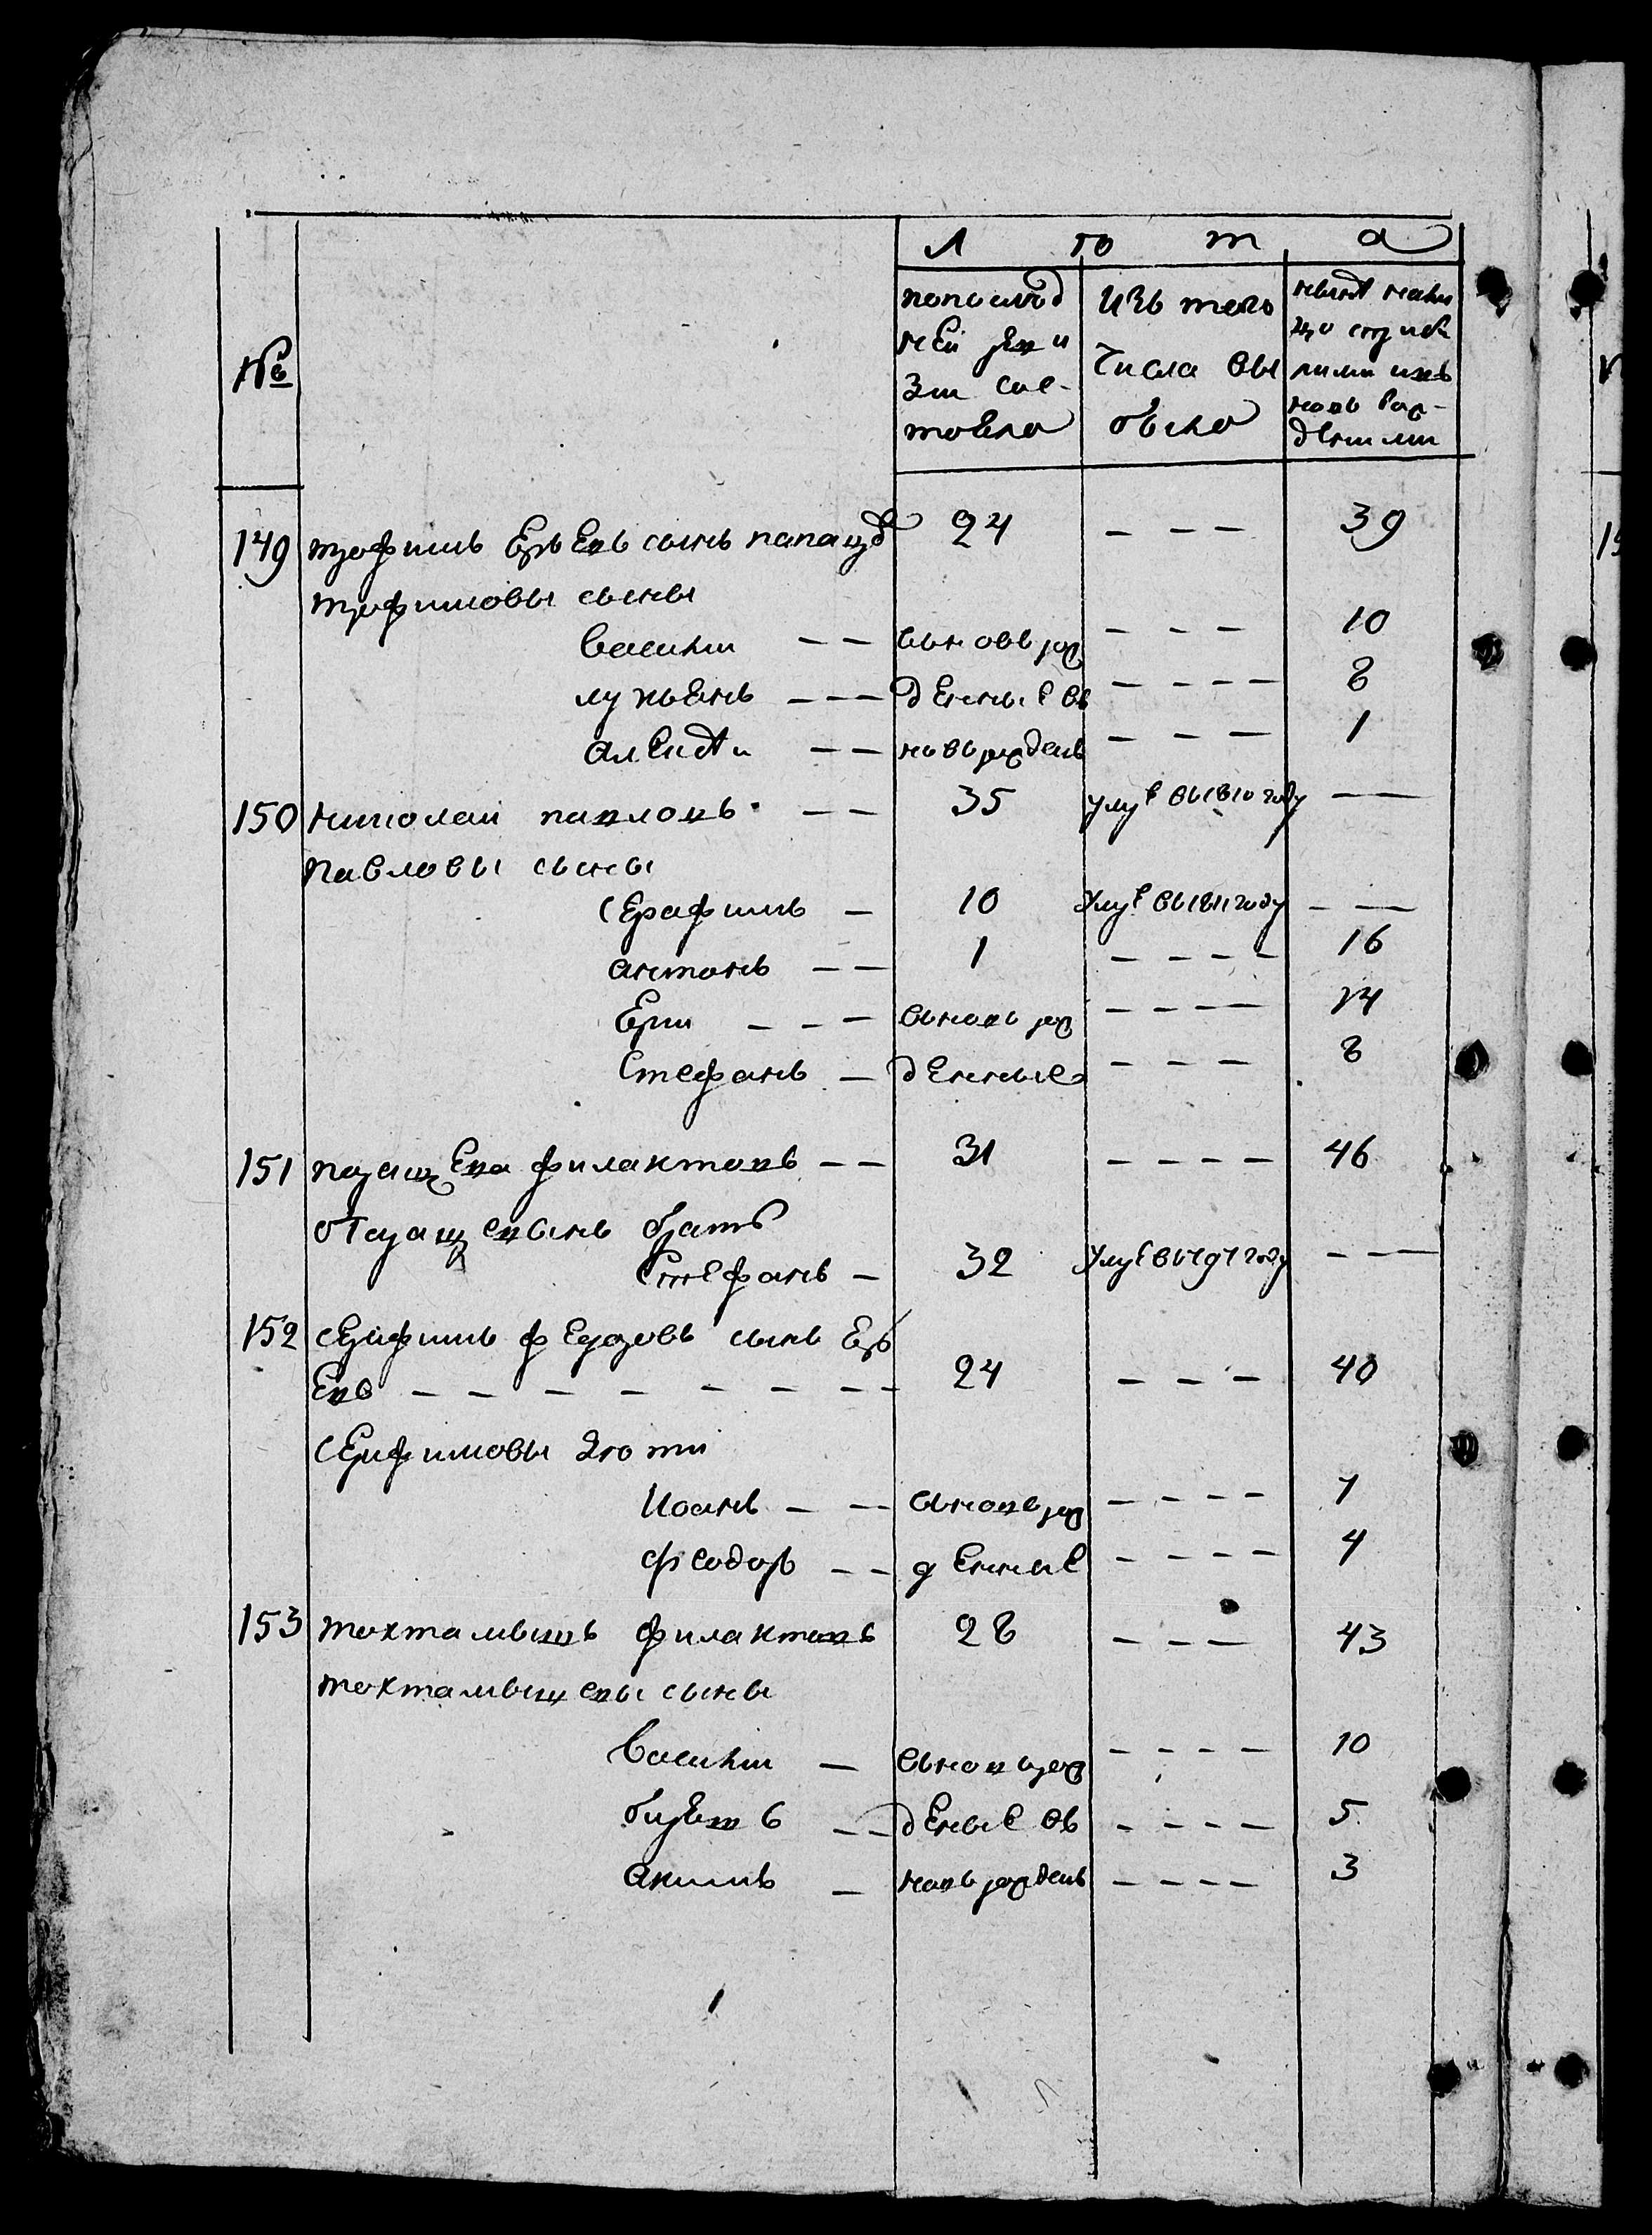 Л ѣ т а
№
попослѣд
ней реви
зіи сос-
тояло
Изъ того
числа вы
было
нынѣ нали
цо
ними изъ
новь рож-
деними
149 трофимъ сынъ 24 — — — 39
трофимовы сыны
василий — — вновь рож — — — 10
лукьянъ — — — денные въ — — — — 8
алексѣи — — новь рожденъ — — — 1
150 николай павловъ — — 35 умре въ 1810 году — —
павловы сыны
серафимъ — 10 умре въ 1811 году — —
антонъ — — 1 — — — — 16
— — — вновь рож — — — — 14
Стефанъ — денные — — — 8
151 филактовъ — — 31 — — — — 46
братъ
Стефанъ — 32 умре въ году — — —
152 серафимъ федоровъ сынъ
— — — — — — — — 24 — — — 40
серафимовы дѣти
Иоанъ — — вновь рож — — — — 7
феодоръ — — денные — — — — 4
153 тохтамышъ филактовъ 28 — — — 43
тохтамышевы сыны
василий — вновь рож — — — — 10
— — деные въ — — — — 5
акимъ — новь рожденъ — — — — 3